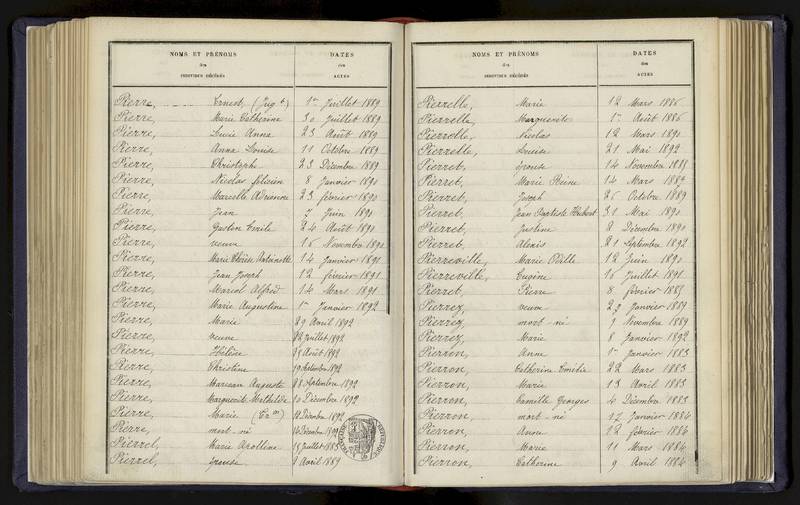 NOMS ET PRÉNOMS
des
INDIVIDUS DÉCÉDÉS
DATES
des
ACTES
Pierre, Ernest, (Jug t) 1er Juillet 1889
Pierre, Marie Catherine 30 Juillet 1889
Pierre, Lucie Anna 23 Août 1889
Pierre, Anna Louise 11 Octobre 1889
Pierre, Christophe 23 Décembre 1889
Pierre, Nicolas Félicien 8 Janvier 1890
Pierre, Marcelle Adrienne 23 février 1890
Pierre, Jean 7 Juin 1890
Pierre, Gaston Emile 24 Août 1890
Pierre, veuve 16 Novembre 1890
Pierre, Marie Thérèse Antoinette 14 Janvier 1891
Pierre, Jean Joseph 12 février 1891
Pierre, Marcel Alfred 14 Mars 1891
Pierre, Marie Augustine 1er Janvier 1892
Pierre, Marie 29 Avril 1892
Pierre, veuve Juillet 1892
Pierre, Hélène Août 1892
Pierre, Christine Septembre 1892
Pierre, Auguste 28 Septembre 1892
Pierre, Marguerite Mathilde 10 Décembre 1892
Pierre, Marie Décembre 1892
Pierre, mort-né Décembre 1892
Pierrel, Marie Apolline Juillet 1883
Pierrel, épouse Avril 1889
NOMS ET PRÉNOMS
des
INDIVIDUS DÉCÉDÉS
DATES
des
ACTES
Pierrelle, Marie 12 Mars 1886
Pierrelle, Marguerite 1er Août 1886
Pierrelle, Nicolas 12 Mars 1890
Pierrelle, Louise 21 Mai 1892
Pierret, épouse 14 Novembre 1885
Pierret, Marie Reine 14 Mars 1889
Pierret, Joseph 26 Octobre 1889
Pierret, Jean Baptiste Hubert 31 Mai 1890
Pierret, Justine 8 Décembre 1890
Pierret, Alexis 21 Septembre 1892
Pierreville, Marie 12 Juin 1890
Pierreville, Eugène 16 Juillet 1891
Pierret, Pierre 8 février 1885
Pierrez, veuve 29 Janvier 1889
Pierrez, mort-né 9 Novembre 1889
Pierrez, Marie 8 Janvier 1892
Pierron, Anne 1er Janvier 1883
Pierron, Catherine 22 Mars 1883
Pierron, Marie 13 Avril 1883
Pierron, Camille Georges 4 Décembre 1883
Pierron, mort-né 12 Janvier 1884
Pierron, Anne 12 février 1884
Pierron, Marie 11 Mars 1884
Pierron, Catherine 9 Avril 1884